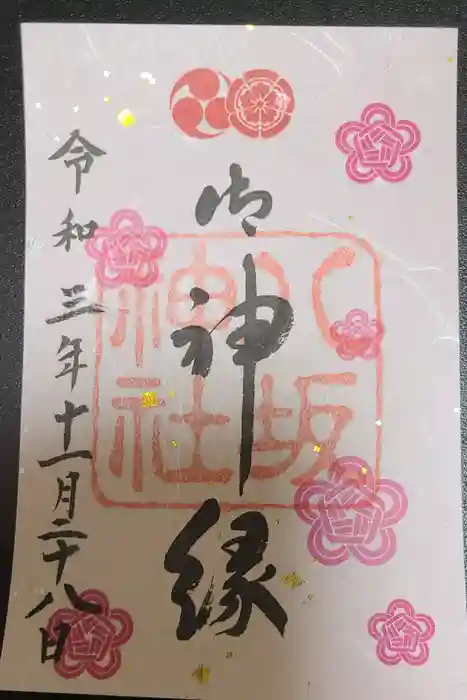 御神縁
八坂神社
令和三年十一月二十八日